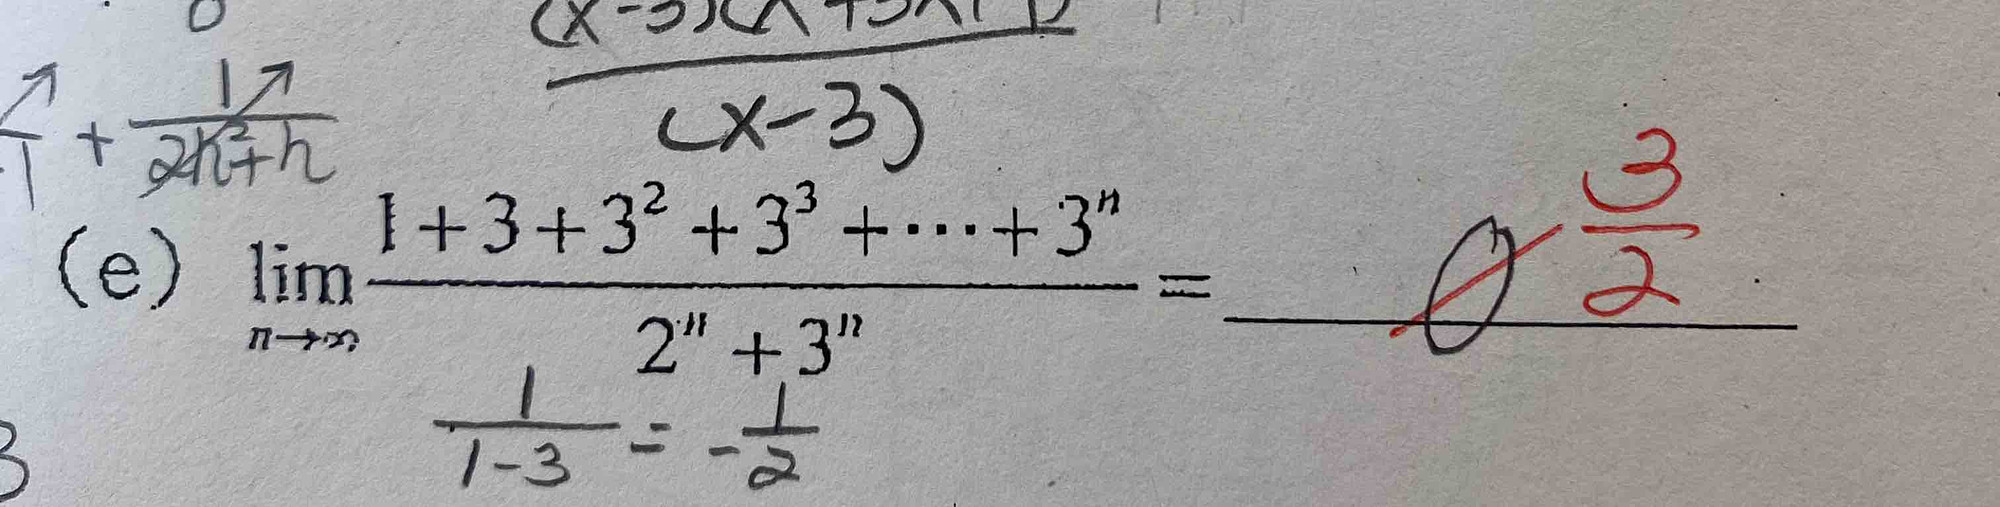 (x-3)(x
(x-3)
+ 1/(2n²+n)
(e) lim n→∞ (1+3+3²+3³+⋯+3ⁿ)/(2ⁿ+3ⁿ) = 0 3/2
1/(1-3) = -1/2
3